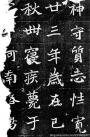 神守質志性寬
廿三年歲在己
秋卌寢疾薨于
河南